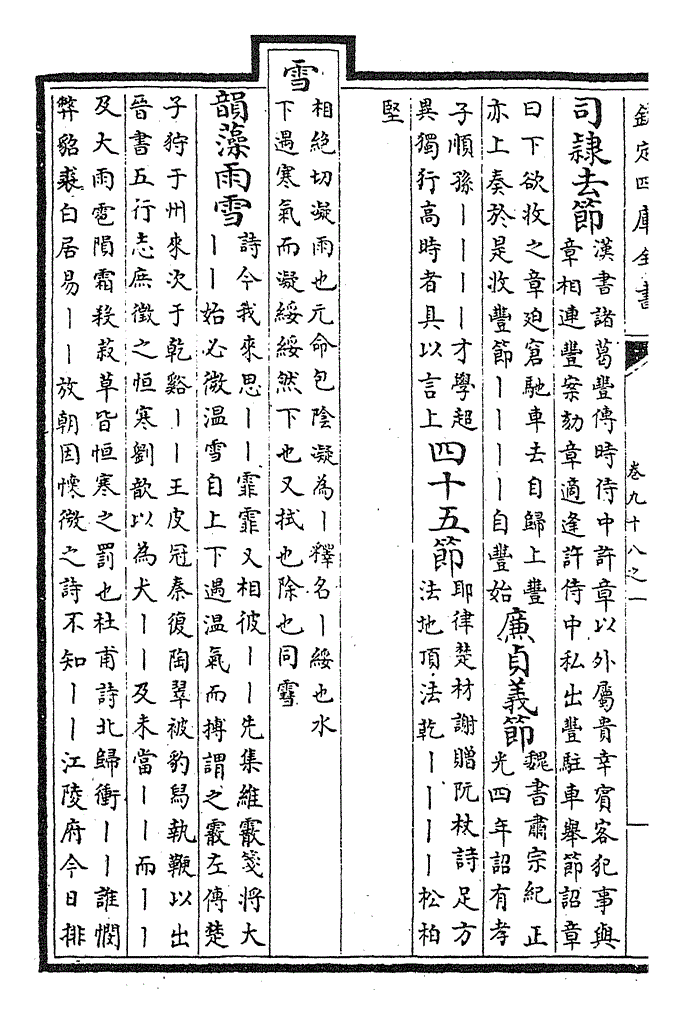 欽定四庫全書 卷九十八之一
司隸去節 漢書諸葛豐傳時侍中許章以外屬貴幸賓客犯事與
章相連豐案劾章適逢許侍中私出豐駐車舉節詔章
曰下欲收之章廹窘馳車去自歸上豐
亦上奏於是收豐節丨丨丨丨自豐始
廉貞義節 魏書肅宗紀正
光四年詔有孝
子順孫丨丨丨丨才學超
異獨行高時者具以言上
四十五節 耶律楚材謝贈阮杖詩足方
法地頂法乾丨丨丨丨松柏
堅
雪 相絶切凝雨也元命包陰凝為丨釋名丨綏也水
下遇寒氣而凝綏綏然下也又拭也除也同䨮
韻藻雨雪 詩今我來思丨丨霏霏又相彼丨丨先集維霰箋將大
丨丨始必微温雪自上下遇温氣而搏謂之霰左傳楚
子狩于州來次于乾谿丨丨王皮冠秦復陶翠被豹舄執鞭以出
晉書五行志庶徵之恒寒劉歆以為大丨丨及未當丨丨而丨丨
及大雨雹隕霜殺菽草皆恒寒之罰也杜甫詩北歸衝丨丨誰憫
弊貂裘白居易丨丨放朝因懷微之詩不知丨丨江陵府今日排